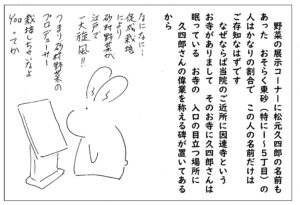 野菜の展示コーナーに松元久四郎の名前も
あった　おそらく東砂（特に１〜５丁目）の
人はかなりの割合で　この人の名前だけは
ご存知なはずです
なぜならば当院のご近所に因速寺という
お寺がありまして　そのお寺に久四郎さんは
眠っている　お寺の　入口の目立つ場所に
久四郎さんの偉業を称える碑が置いてある
から
なになに…
促成栽培
により
砂村野菜の
江戸で
一大旋風!!
つまり砂村野菜の
プロデューサー
栽培しちゃいなよ
You…てか